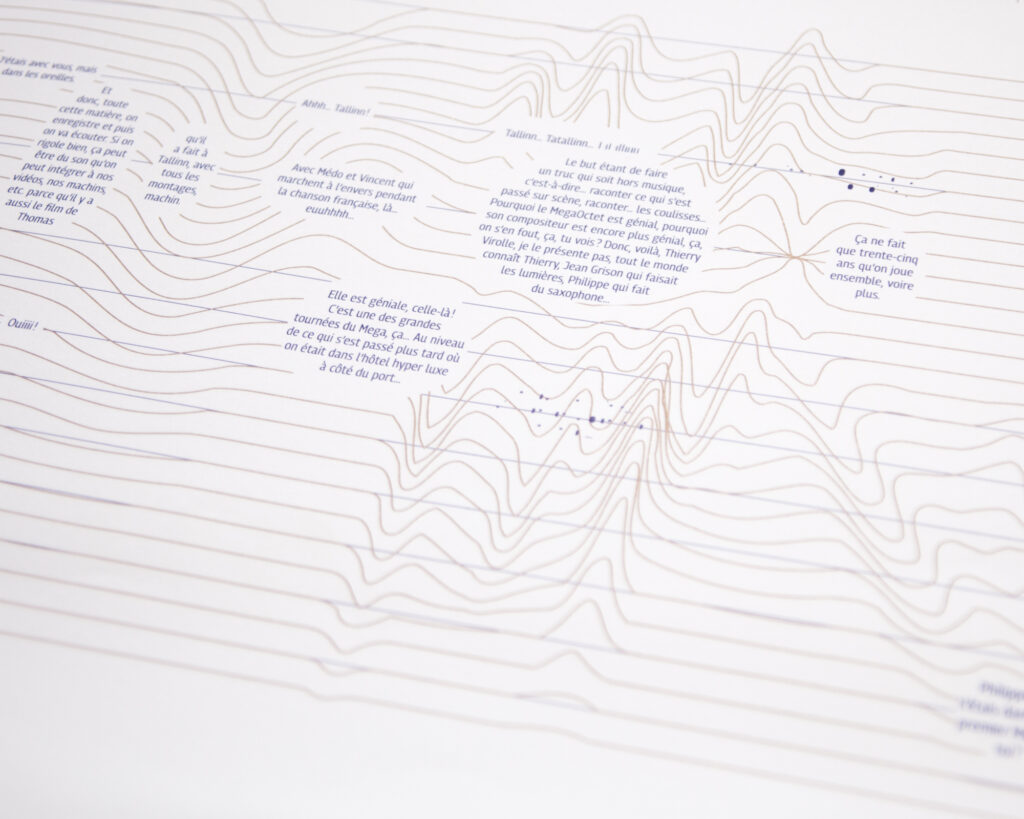 J'étais avec vous, mais
dans les oreilles.
Et
donc, toute
cette matière, on
enregistre et puis
on va écouter. Si on
rigole bien, ça peut
être du son qu'on
peut intégrer à nos
vidéos, nos machins,
etc. parce qu'il y a
aussi le film de
Thomas
qu'il
a fait à
Tallinn, avec
tous les
montages,
machin.
Ahhh... Tallinn !
Avec Médo et Vincent qui
marchent à l'envers pendant
la chanson française, là...
euuhhhh...
Tallinn... Tatallinn...
Le but étant de faire
un truc qui soit hors musique,
c'est-à-dire... raconter ce qui s'est
passé sur scène, raconter... les coulisses...
Pourquoi le MegaOctet est génial, pourquoi
son compositeur est encore plus génial, ça,
on s'en fout, ça, tu vois ? Donc, voilà, Thierry
Virolle, je le présente pas, tout le monde
connaît Thierry, Jean Grison qui faisait
les lumières, Philippe qui fait
du saxophone...
Ça ne fait
que trente-cinq
ans qu'on joue
ensemble, voire
plus.
Elle est géniale, celle-là !
C'est une des grandes
tournées du Mega, ça... Au niveau
de ce qui s'est passé plus tard où
on était dans l'hôtel hyper luxe
à côté du port...
Ouiiii !